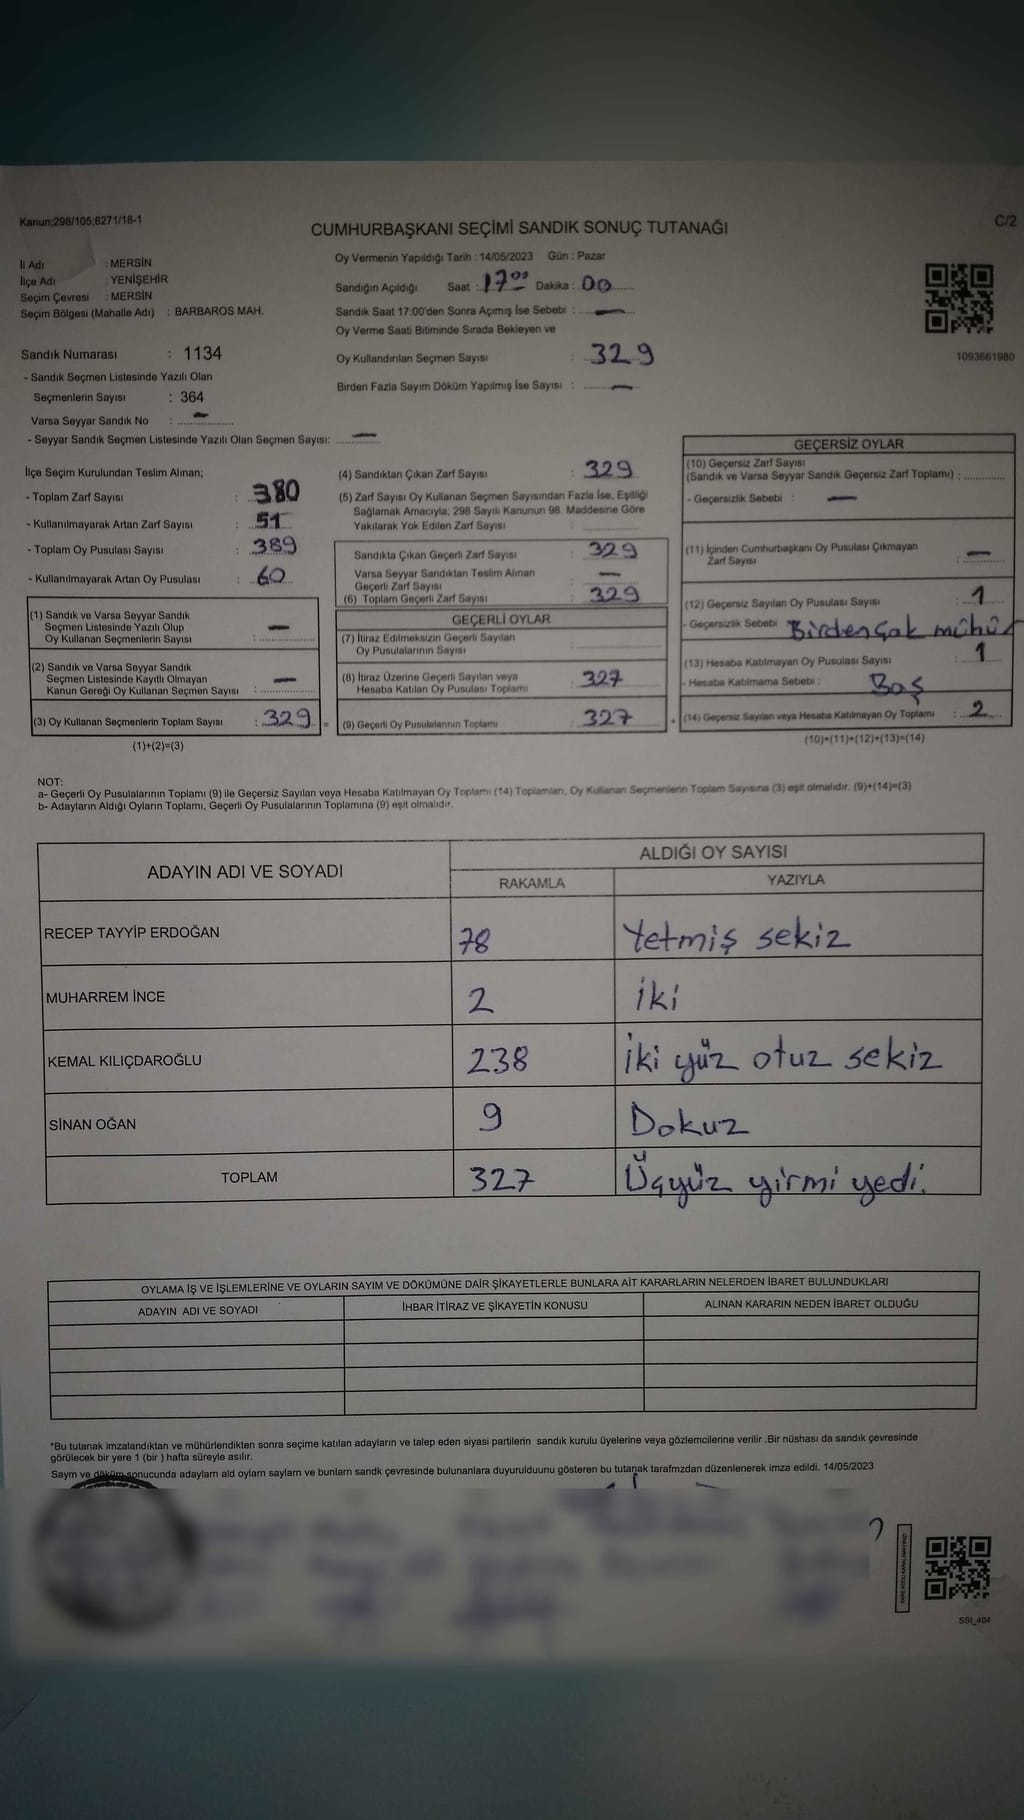 Kanun;298/105;6271/18-1
C/2
CUMHURBAŞKANI SEÇİMİ SANDIK SONUÇ TUTANAĞI
İl Adı : MERSİN
İlçe Adı : YENİŞEHİR
Seçim Çevresi : MERSİN
Seçim Bölgesi (Mahalle Adı) : BARBAROS MAH.
Sandık Numarası : 1134
- Sandık Seçmen Listesinde Yazılı Olan
Seçmenlerin Sayısı : 364
Varsa Seyyar Sandık No : —
- Seyyar Sandık Seçmen Listesinde Yazılı Olan Seçmen Sayısı: —
Oy Vermenin Yapıldığı Tarih : 14/05/2023 Gün : Pazar
Sandığın Açıldığı Saat : 17⁰⁰ Dakika : 00
Sandık Saat 17:00'den Sonra Açımış İse Sebebi : —
Oy Verme Saati Bitiminde Sırada Bekleyen ve
Oy Kullandırılan Seçmen Sayısı : 329
Birden Fazla Sayım Döküm Yapılmış İse Sayısı : —
1093661980
İlçe Seçim Kurulundan Teslim Alınan;
- Toplam Zarf Sayısı : 380
- Kullanılmayarak Artan Zarf Sayısı : 51
- Toplam Oy Pusulası Sayısı : 389
- Kullanılmayarak Artan Oy Pusulası : 60
(1) Sandık ve Varsa Seyyar Sandık
Seçmen Listesinde Yazılı Olup
Oy Kullanan Seçmenlerin Sayısı : —
(2) Sandık ve Varsa Seyyar Sandık
Seçmen Listesinde Kayıtlı Olmayan
Kanun Gereği Oy Kullanan Seçmen Sayısı : —
(3) Oy Kullanan Seçmenlerin Toplam Sayısı : 329 =
(1)+(2)=(3)
(4) Sandıktan Çıkan Zarf Sayısı : 329
(5) Zarf Sayısı Oy Kullanan Seçmen Sayısından Fazla İse, Eşitliği
Sağlamak Amacıyla; 298 Sayılı Kanunun 98. Maddesine Göre
Yakılarak Yok Edilen Zarf Sayısı :
Sandıkta Çıkan Geçerli Zarf Sayısı : 329
Varsa Seyyar Sandıktan Teslim Alınan
Geçerli Zarf Sayısı : —
(6) Toplam Geçerli Zarf Sayısı : 329
GEÇERLİ OYLAR
(7) İtiraz Edilmeksizin Geçerli Sayılan
Oy Pusulalarının Sayısı :
(8) İtiraz Üzerine Geçerli Sayılan veya
Hesaba Katılan Oy Pusulası Toplamı : 327
(9) Geçerli Oy Pusulalarının Toplamı : 327 +
GEÇERSİZ OYLAR
(10) Geçersiz Zarf Sayısı
(Sandık ve Varsa Seyyar Sandık Geçersiz Zarf Toplamı) :
- Geçersizlik Sebebi : —
(11) İçinden Cumhurbaşkanı Oy Pusulası Çıkmayan
Zarf Sayısı : —
(12) Geçersiz Sayılan Oy Pusulası Sayısı : 1
- Geçersizlik Sebebi Birden çok mühür
(13) Hesaba Katılmayan Oy Pusulası Sayısı : 1
- Hesaba Katılmama Sebebi : Boş
(14) Geçersiz Sayılan veya Hesaba Katılmayan Oy Toplamı : 2
(10)+(11)+(12)+(13)=(14)
NOT:
a- Geçerli Oy Pusulalarının Toplamı (9) ile Geçersiz Sayılan veya Hesaba Katılmayan Oy Toplamı (14) Toplamları, Oy Kullanan Seçmenlerin Toplam Sayısına (3) eşit olmalıdır. (9)+(14)=(3)
b- Adayların Aldığı Oyların Toplamı, Geçerli Oy Pusulalarının Toplamına (9) eşit olmalıdır.
ADAYIN ADI VE SOYADI
ALDIĞI OY SAYISI
RAKAMLA YAZIYLA
RECEP TAYYİP ERDOĞAN 78 Yetmiş sekiz
MUHARREM İNCE 2 İki
KEMAL KILIÇDAROĞLU 238 İki yüz otuz sekiz
SİNAN OĞAN 9 Dokuz
TOPLAM 327 Üçyüz yirmi yedi.
OYLAMA İŞ VE İŞLEMLERİNE VE OYLARIN SAYIM VE DÖKÜMÜNE DAİR ŞİKAYETLERLE BUNLARA AİT KARARLARIN NELERDEN İBARET BULUNDUKLARI
ADAYIN ADI VE SOYADI İHBAR İTİRAZ VE ŞİKAYETİN KONUSU ALINAN KARARIN NEDEN İBARET OLDUĞU
*Bu tutanak imzalandıktan ve mühürlendikten sonra seçime katılan adayların ve talep eden siyasi partilerin sandık kurulu üyelerine veya gözlemcilerine verilir .Bir nüshası da sandık çevresinde
görülecek bir yere 1 (bir ) hafta süreyle asılır.
Sayım ve döküm sonucunda adayların ald oyların sayların ve bunların sandk çevresinde bulunanlara duyurulduunu gösteren bu tutanak tarafmzdan düzenlenerek imza edildi. 14/05/2023
SSI_404